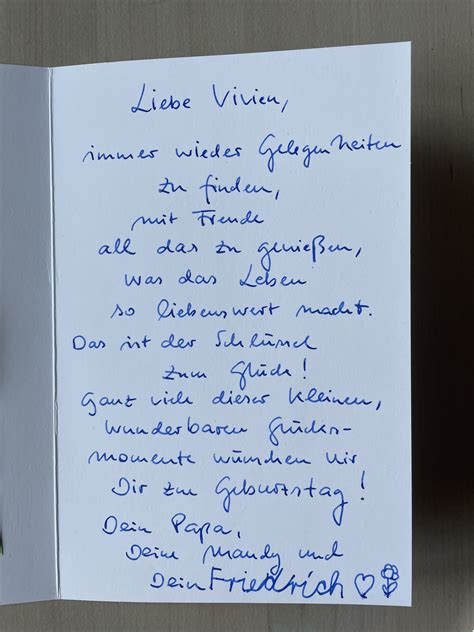 Liebe Vivien,
immer wieder Gelegenheiten
zu finden,
mit Freude
all das zu genießen,
was das Leben
so liebenswert macht.
Das ist der Schlüssel
zum Glück!
Ganz viele dieser kleinen,
wunderbaren Glücks-
momente wünschen wir
Dir zum Geburtstag!
Dein Papa,
Deine Mandy und
Dein Friedrich